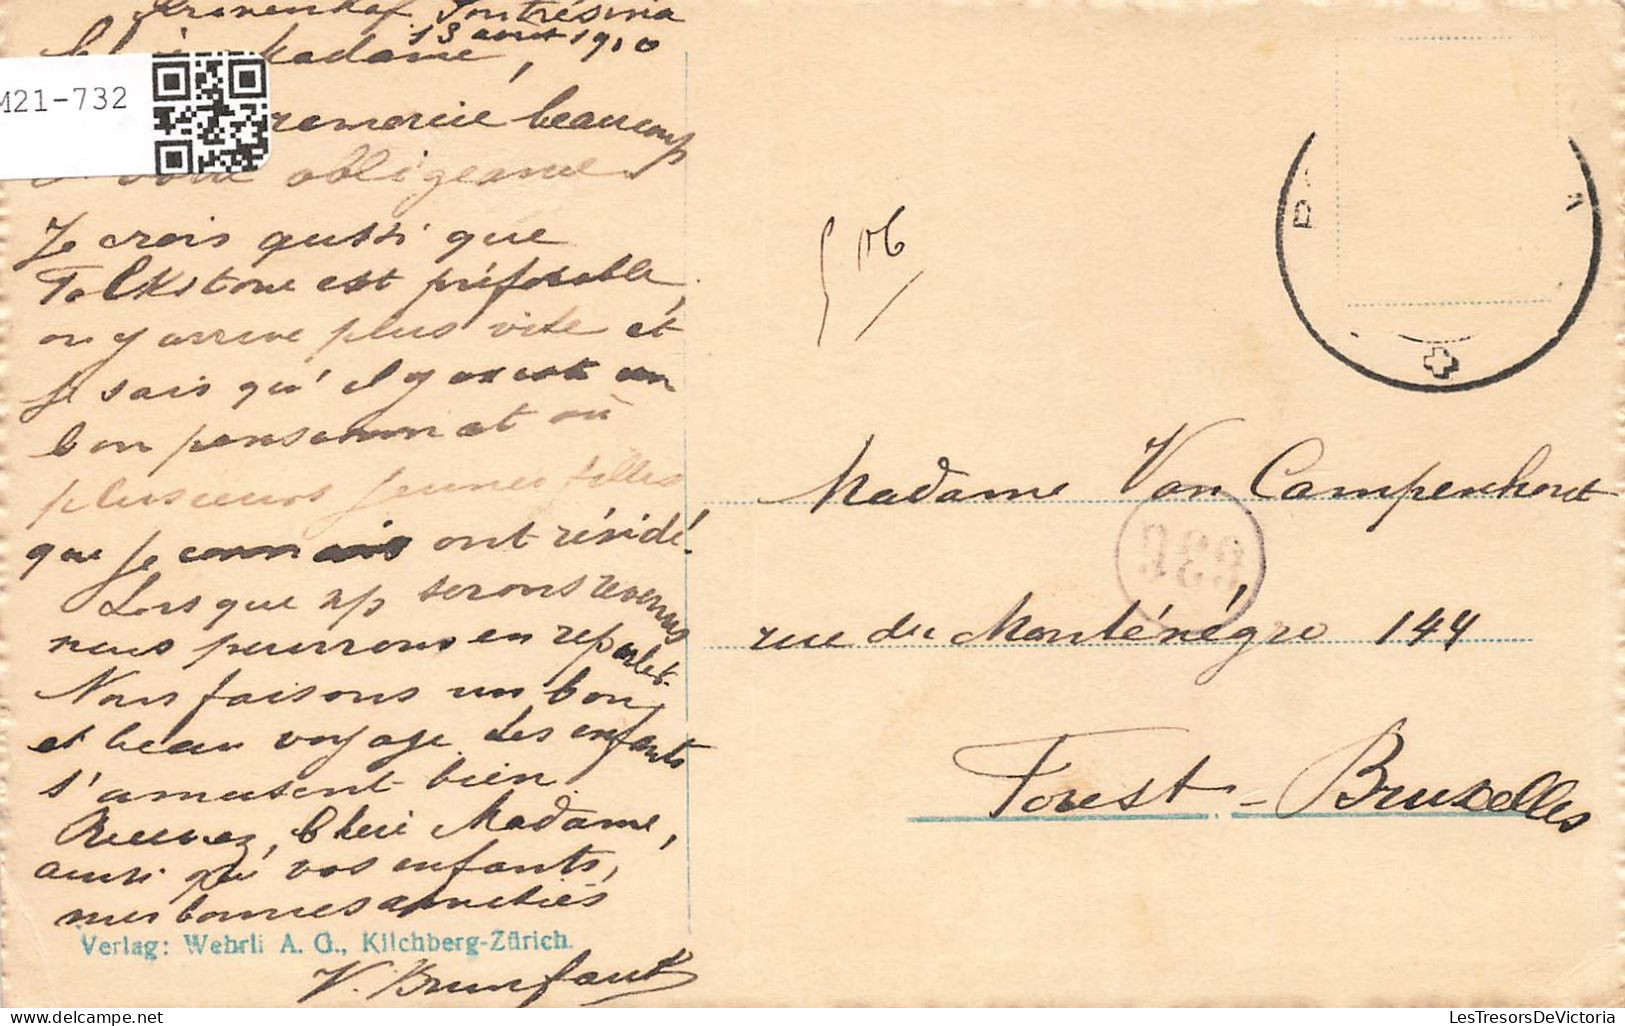 Kronenhof, Pontrésina
13 août 1910
Madame,
M21-732
remercie beaucoup
votre obligeance
Je crois aussi que
Folkstone est préférable,
on y arrive plus vite et
je sais qu'il y existe un
bon pensionnat où
plusieurs jeunes filles
que je connais ont résidé.
Lorsque ns serons revenus
nous pourrons en reparler.
Nous faisons un bon
et beau voyage. Les enfants
s'amusent bien.
Recevez, Chère Madame,
ainsi que vos enfants,
mes bonnes amitiés
V. Brunfaut
Verlag: Wehrli A. G., Kilchberg-Zürich.
Madame Van Campenhout
rue du Monténégro 144
Forest-Bruxelles
LesTresorsDeVictoria.com